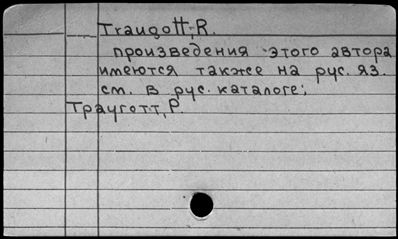 Traugott, R.
произведения этого автора
имеются также на рус. яз.
см. в рус. каталоге;
Трауготт, Р.